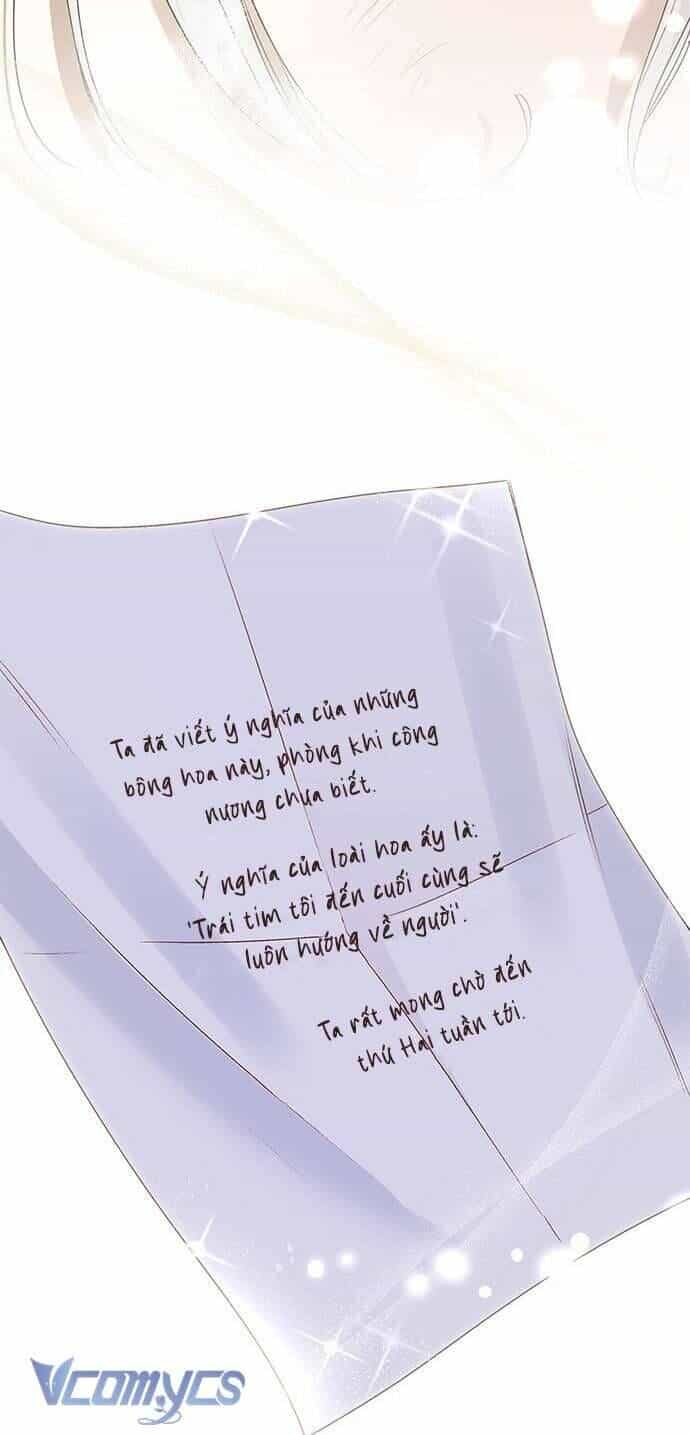 Ta đã viết ý nghĩa của những
bông hoa này, phòng khi công
nương chưa biết.
Ý nghĩa của loài hoa ấy là:
'Trái tim tôi đến cuối cùng sẽ
luôn hướng về người'.
Ta rất mong chờ đến
thứ Hai tuần tới.
Vcomycs